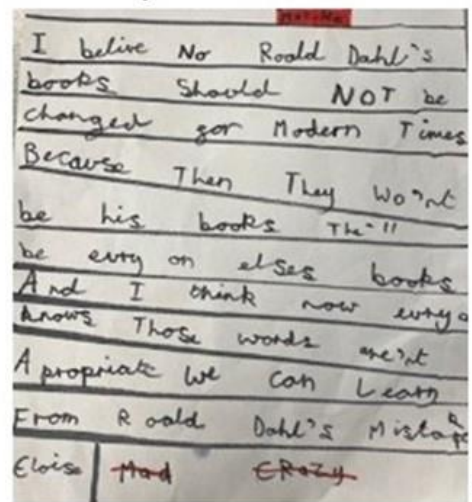 I belive No Roald Dahl's
books Should NOT be
changed for Modern Times
Because Then They Wo'nt
be his books The'll
be evry on elses books
And I think now evry o
knows Those words are'nt
Apropriate we can Learn
From Roald Dahl's Mistake
Eloise Mad CRazy